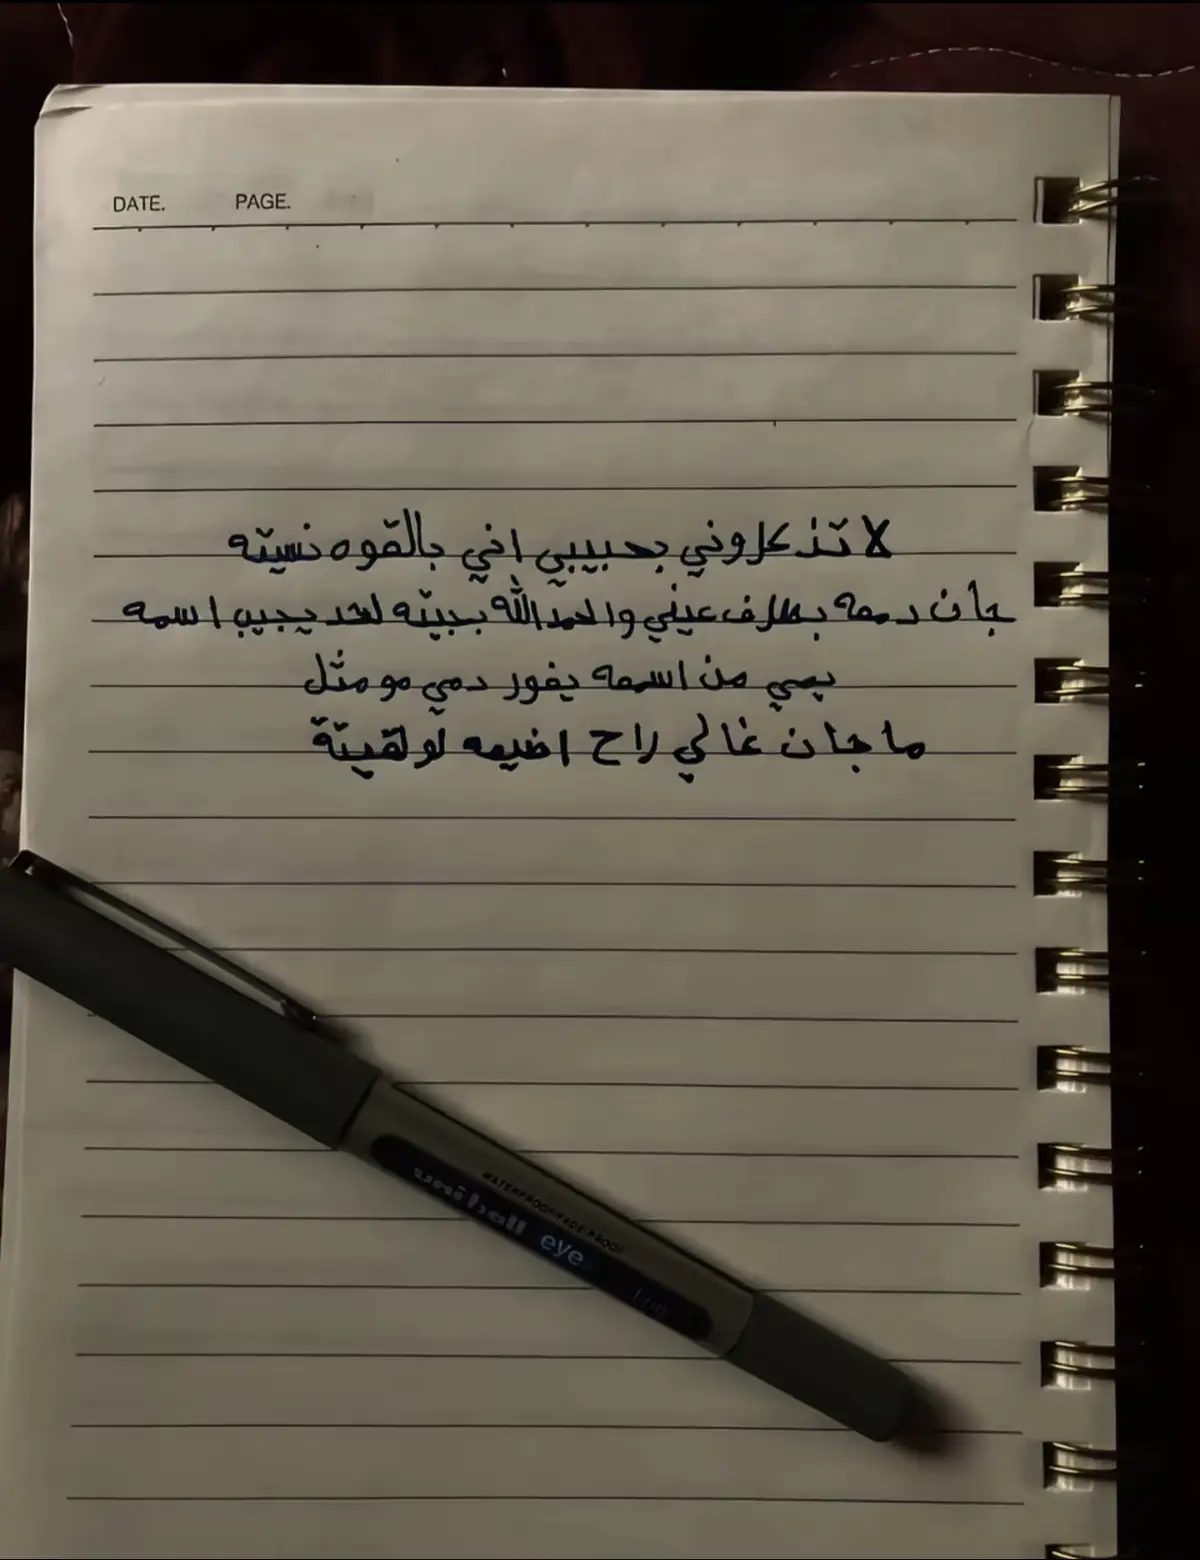 DATE. PAGE.
لا تذكروني بحبيبي اني بالقوه نسيته
جان دمعه بطرف عيني والحمدالله بجيته لحد يجيب اسمه
يمي من اسمه يفور دمي مو مثل
ما جان غالي راح اضيمه لو لقيتة
WATERPROOF/FADE PROOF
uni-ball eye